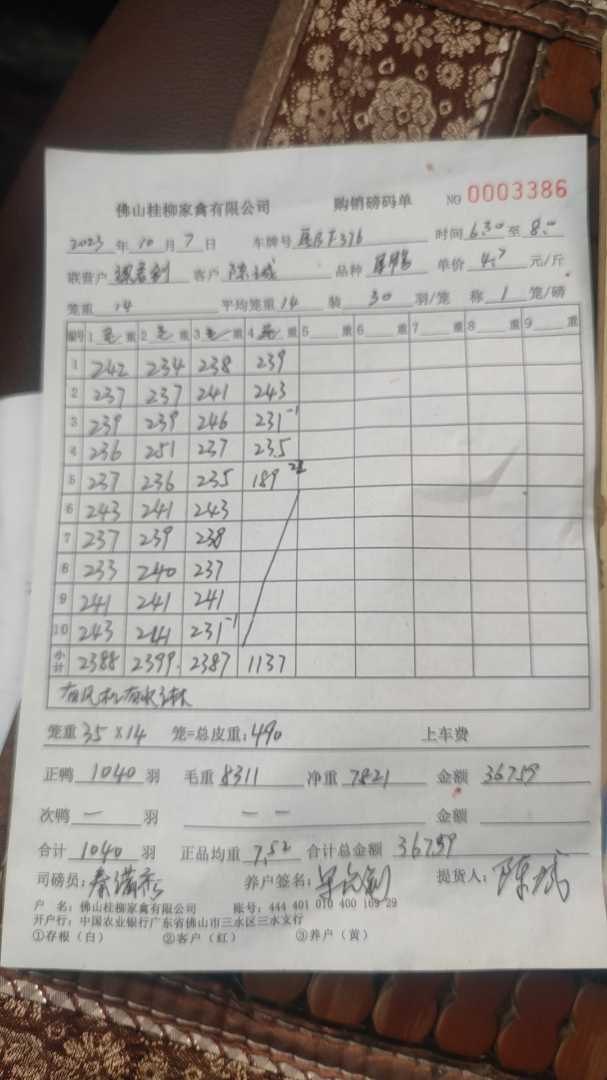 佛山桂柳家禽有限公司 购销磅码单 NO 0003386
2023 年 10 月 7 日 车牌号 376 时间 6:30 至 8:00
联营户 客户 陈 城 品种 单价 4.7 元/斤
笼重 14 平均笼重 14 装 30 羽/笼 称 1 笼/磅
编号 1 毛 重 2 毛 重 3 毛 重 4 毛 重 5 重 6 重 7 重 8 重 9 重
1 242 234 238 239
2 237 237 241 243
3 239 239 246 231 -1
4 236 251 237 235
5 237 236 235 189
6 243 241 243
7 237 239 238
8 233 240 237
9 241 241 241
10 243 241 231 -1
小计 2388 2399 2387 1137
有风机有水
笼重 35×14 笼=总皮重: 490 上车费
正鸭 1040 羽 毛重 8311 净重 7821 金额 36759
次鸭 — 羽 — — 金额
合计 1040 羽 正品均重 7.52 合计总金额 36759
司磅员: 秦满 养户签名: 提货人: 陈城
户 名: 佛山桂柳家禽有限公司 账号: 444 401 010 400 169 29
开户行: 中国农业银行广东省佛山市三水区三水支行
①存根(白) ②客户(红) ③养户(黄)